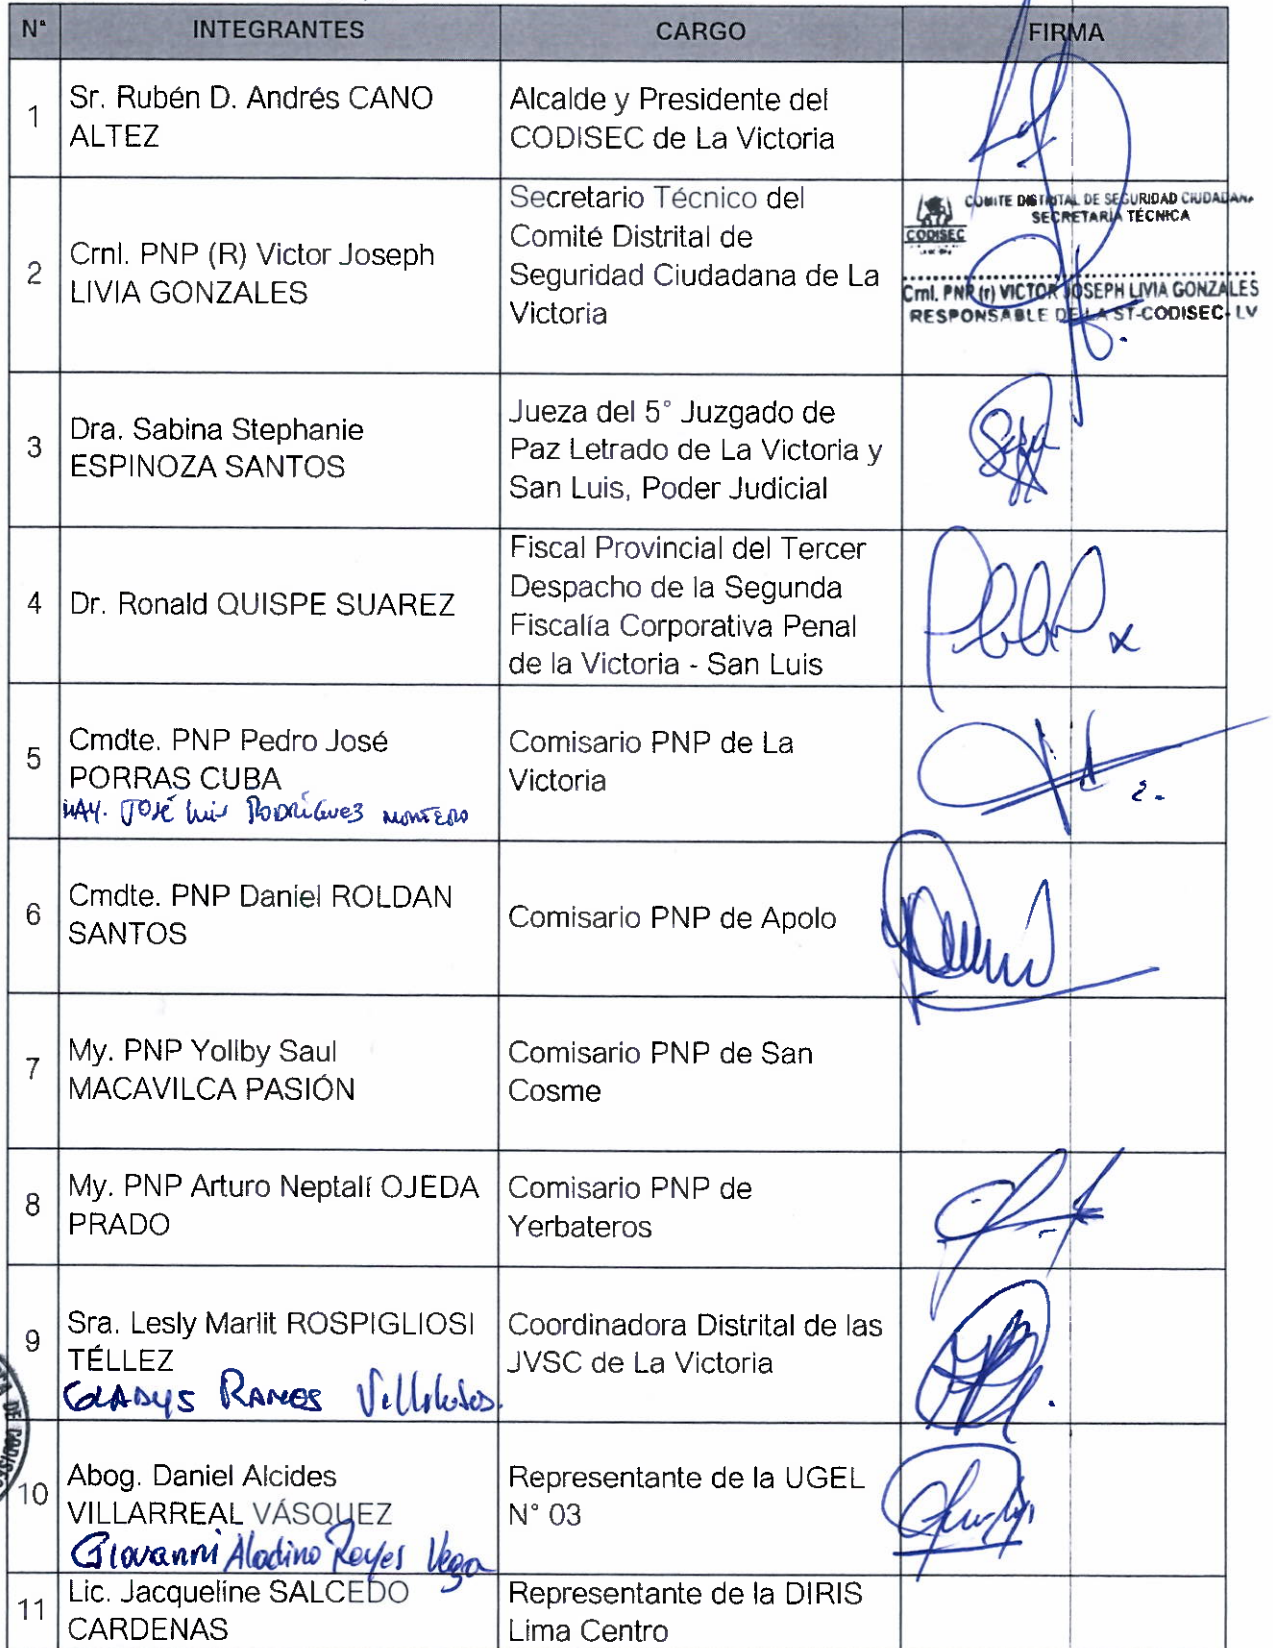 N° INTEGRANTES CARGO FIRMA
1 Sr. Rubén D. Andrés CANO ALTEZ
Alcalde y Presidente del
CODISEC de La Victoria
2 Crnl. PNP (R) Victor Joseph
LIVIA GONZALES
Secretario Técnico del
Comité Distrital de
Seguridad Ciudadana de La
Victoria
COMITE DISTRITAL DE SEGURIDAD CIUDADANA
SECRETARÍA TÉCNICA
CODISEC
Crnl. PNP (r) VICTOR JOSEPH LIVIA GONZALES
RESPONSABLE DE LA ST-CODISEC-LV
3 Dra. Sabina Stephanie
ESPINOZA SANTOS
Jueza del 5° Juzgado de
Paz Letrado de La Victoria y
San Luis, Poder Judicial
4 Dr. Ronald QUISPE SUAREZ
Fiscal Provincial del Tercer
Despacho de la Segunda
Fiscalía Corporativa Penal
de la Victoria - San Luis
5 Cmdte. PNP Pedro José
PORRAS CUBA
MAY. José Luis Rodríguez Montero
Comisario PNP de La
Victoria
6 Cmdte. PNP Daniel ROLDAN
SANTOS
Comisario PNP de Apolo
7 My. PNP Yollby Saul
MACAVILCA PASIÓN
Comisario PNP de San
Cosme
8 My. PNP Arturo Neptalí OJEDA
PRADO
Comisario PNP de
Yerbateros
9 Sra. Lesly Marlit ROSPIGLIOSI
TÉLLEZ
GLADYS RAMOS
Coordinadora Distrital de las
JVSC de La Victoria
10 Abog. Daniel Alcides
VILLARREAL VÁSQUEZ
Giovanni Aladino Reyes Vega
Representante de la UGEL
N° 03
11 Lic. Jacqueline SALCEDO
CARDENAS
Representante de la DIRIS
Lima Centro